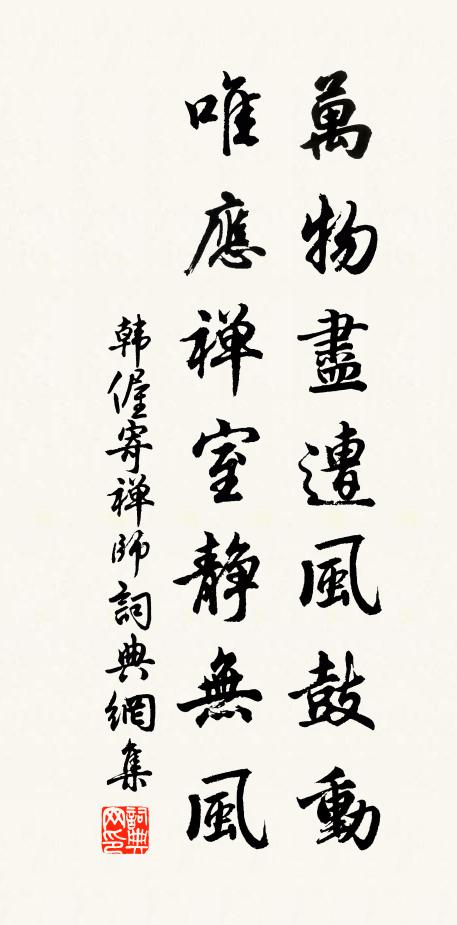 萬物盡遭風鼓動
唯應禅室静無風
韩偓寄禅師詞典網集
詞典网印